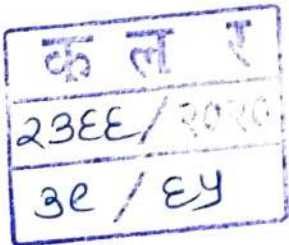 क ल र
२३६६/२०२०
३९ / ६५